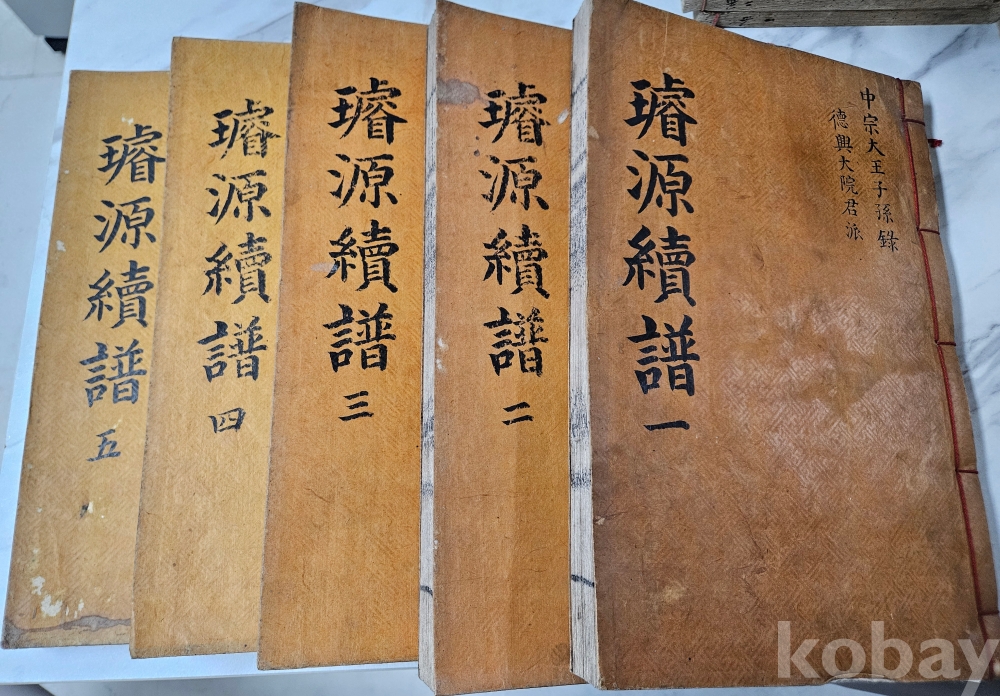 中宗大王子孫錄
德興大院君派
璿源續譜 一
璿源續譜 二
璿源續譜 三
璿源續譜 四
璿源續譜 五
kobay